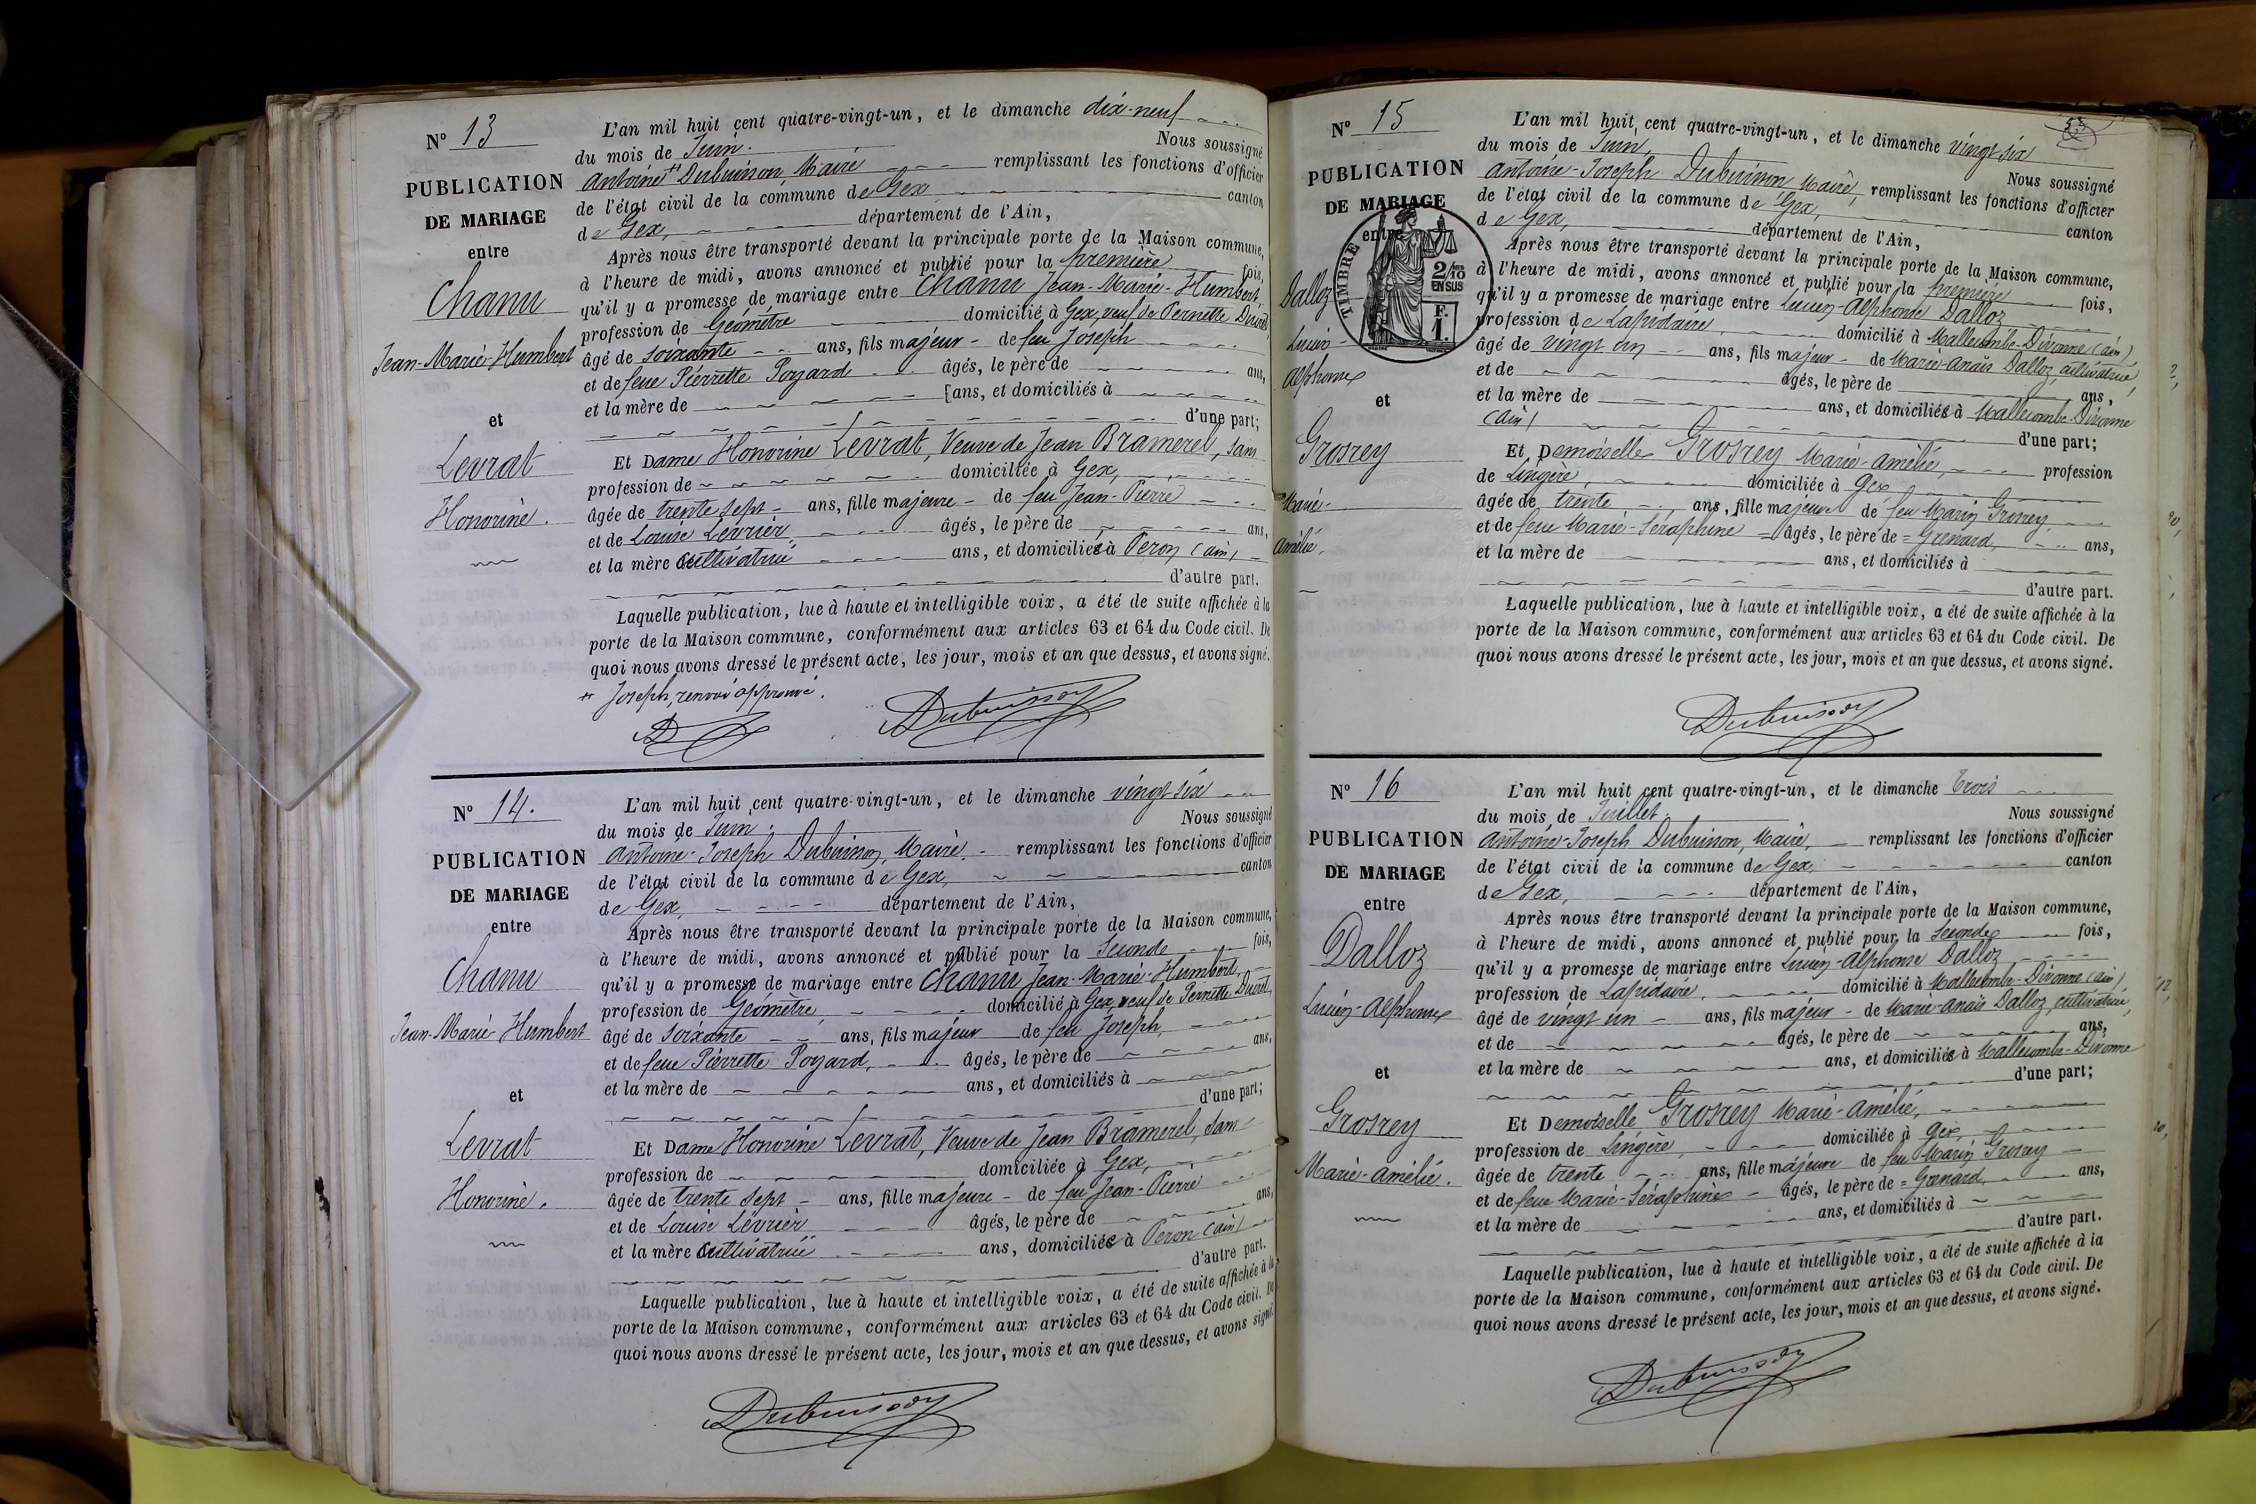 N° 13
PUBLICATION
DE MARIAGE
entre
Chanu
Jean-Marie-Humbert
et
Levrat
Honorine.
L'an mil huit cent quatre-vingt-un, et le dimanche dix-neuf
du mois de Juin. Nous soussigné
Antoine Dubuisson, Maire remplissant les fonctions d'officier
de l'état civil de la commune de Gex canton
de Gex, département de l'Ain,
Après nous être transporté devant la principale porte de la Maison commune,
à l'heure de midi, avons annoncé et publié pour la première fois,
qu'il y a promesse de mariage entre Chanu Jean-Marie-Humbert,
profession de Géomètre domicilié à Gex, veuf de Pernette
âgé de soixante ans, fils majeur de feu Joseph
et de feue Pierrette Poyard âgés, le père de ans,
et la mère de ans, et domiciliés à
d'une part;
Et Dame Honorine Levrat, Veuve de Jean Bramerel, sans
profession de domiciliée à Gex,
âgée de trente sept ans, fille majeure de feu Jean-Pierre
et de Louise Levrier, âgés, le père de ans,
et la mère cultivatrice ans, et domiciliés à Peron (ain)
d'autre part.
Laquelle publication, lue à haute et intelligible voix, a été de suite affichée à la
porte de la Maison commune, conformément aux articles 63 et 64 du Code civil. De
quoi nous avons dressé le présent acte, les jour, mois et an que dessus, et avons signé.
Joseph, renvoi approuvé.
D Dubuisson
N° 14.
PUBLICATION
DE MARIAGE
entre
Chanu
Jean-Marie Humbert
et
Levrat
Honorine.
L'an mil huit cent quatre-vingt-un, et le dimanche vingt six
du mois de Juin. Nous soussigné
Antoine-Joseph Dubuisson, Maire remplissant les fonctions d'officier
de l'état civil de la commune de Gex, canton
de Gex, département de l'Ain,
Après nous être transporté devant la principale porte de la Maison commune,
à l'heure de midi, avons annoncé et publié pour la seconde fois,
qu'il y a promesse de mariage entre Chanu Jean-Marie-Humbert,
profession de Géomètre domicilié à Gex, veuf de Pernette
âgé de soixante ans, fils majeur de feu Joseph,
et de feue Pierrette Poyard, âgés, le père de ans,
et la mère de ans, et domiciliés à
d'une part;
Et Dame Honorine Levrat, Veuve de Jean Bramerel, sans
profession de domiciliée à Gex,
âgée de trente sept ans, fille majeure de feu Jean-Pierre
et de Louise Lévrier âgés, le père de ans,
et la mère cultivatrice ans, domiciliés à Peron (ain)
d'autre part.
Laquelle publication, lue à haute et intelligible voix, a été de suite affichée à la
porte de la Maison commune, conformément aux articles 63 et 64 du Code civil. De
quoi nous avons dressé le présent acte, les jour, mois et an que dessus, et avons signé.
Dubuisson
N° 15
PUBLICATION
DE MARIAGE
entre
TIMBRE
2/10
EN SUS
F.
1.
Dalloz
Lucien-
Alphonse
et
Grosrey
Marie-
Amélie,
L'an mil huit cent quatre-vingt-un, et le dimanche vingt six
du mois de Juin, Nous soussigné
Antoine-Joseph Dubuisson Maire, remplissant les fonctions d'officier
de l'état civil de la commune de Gex, canton
de Gex, département de l'Ain,
Après nous être transporté devant la principale porte de la Maison commune,
à l'heure de midi, avons annoncé et publié pour la première fois,
qu'il y a promesse de mariage entre Lucien-Alphonse Dalloz
profession de Lapidaire, domicilié à Mallecombe-Divonne (ain)
âgé de vingt un ans, fils majeur de Marie-Anaïs Dalloz, cultivatrice,
et de âgés, le père de ans,
et la mère de ans, et domiciliés à Mallecombe-Divonne
(ain) d'une part;
Et Demoiselle Grosrey Marie-Amélie, profession
de Lingère, domiciliée à Gex
âgée de trente ans, fille majeure de feu Marin Grosrey
et de feue Marie-Séraphine = âgés, le père de = Grenard, ans,
et la mère de ans, et domiciliés à
d'autre part.
Laquelle publication, lue à haute et intelligible voix, a été de suite affichée à la
porte de la Maison commune, conformément aux articles 63 et 64 du Code civil. De
quoi nous avons dressé le présent acte, les jour, mois et an que dessus, et avons signé.
Dubuisson
N° 16
PUBLICATION
DE MARIAGE
entre
Dalloz
Lucien-Alphonse
et
Grosrey
Marie-Amélie.
L'an mil huit cent quatre-vingt-un, et le dimanche trois
du mois de Juillet Nous soussigné
Antoine-Joseph Dubuisson, Maire, remplissant les fonctions d'officier
de l'état civil de la commune de Gex, canton
de Gex, département de l'Ain,
Après nous être transporté devant la principale porte de la Maison commune,
à l'heure de midi, avons annoncé et publié pour la seconde fois,
qu'il y a promesse de mariage entre Lucien-Alphonse Dalloz
profession de Lapidaire, domicilié à Mallecombe-Divonne (ain)
âgé de vingt un ans, fils majeur de Marie-Anaïs Dalloz, cultivatrice,
et de âgés, le père de ans,
et la mère de ans, et domiciliés à Mallecombe-Divonne
d'une part;
Et Demoiselle Grosrey Marie-Amélie,
profession de Lingère, domiciliée à Gex,
âgée de trente ans, fille majeure de feu Marin Grosrey
et de feue Marie-Séraphine âgés, le père de = Grenard, ans,
et la mère de ans, et domiciliés à
d'autre part.
Laquelle publication, lue à haute et intelligible voix, a été de suite affichée à la
porte de la Maison commune, conformément aux articles 63 et 64 du Code civil. De
quoi nous avons dressé le présent acte, les jour, mois et an que dessus, et avons signé.
Dubuisson